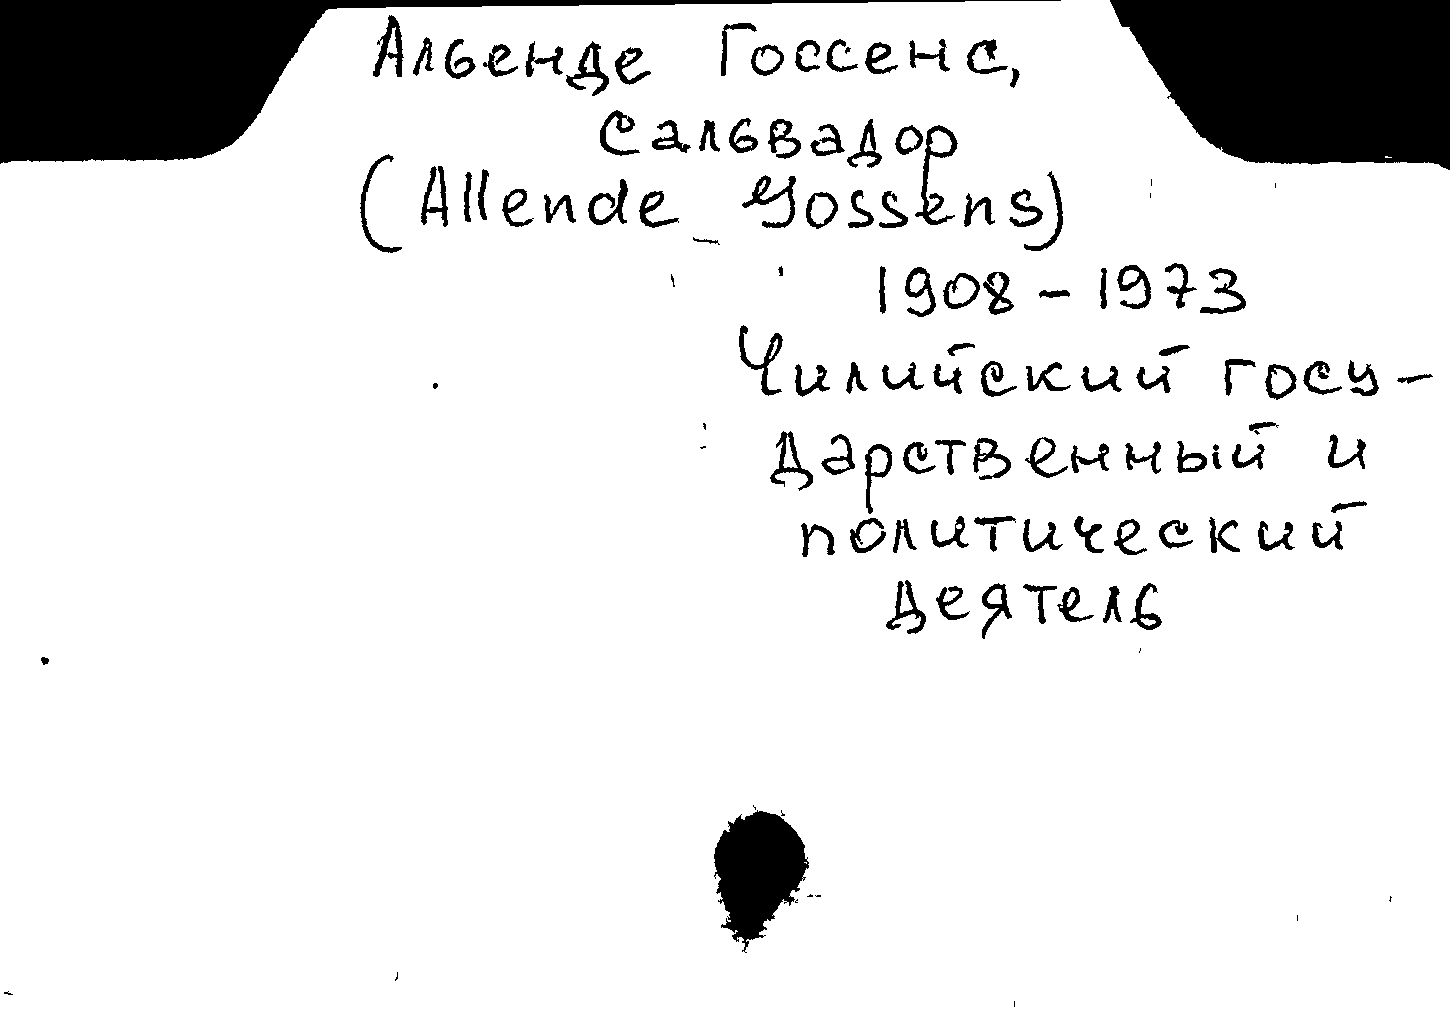 Альенде Госсенс,
Сальвадор
(Allende Gossens)
1908 - 1973
Чилийский госу-
дарственный и
политический
деятель